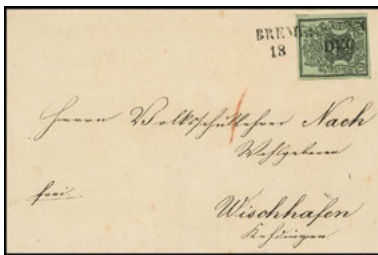 BREM
18 DEC
Herrn Volksschullehrer Nach
Wohlgeboren
frei
Wischhafen
Kehdingen